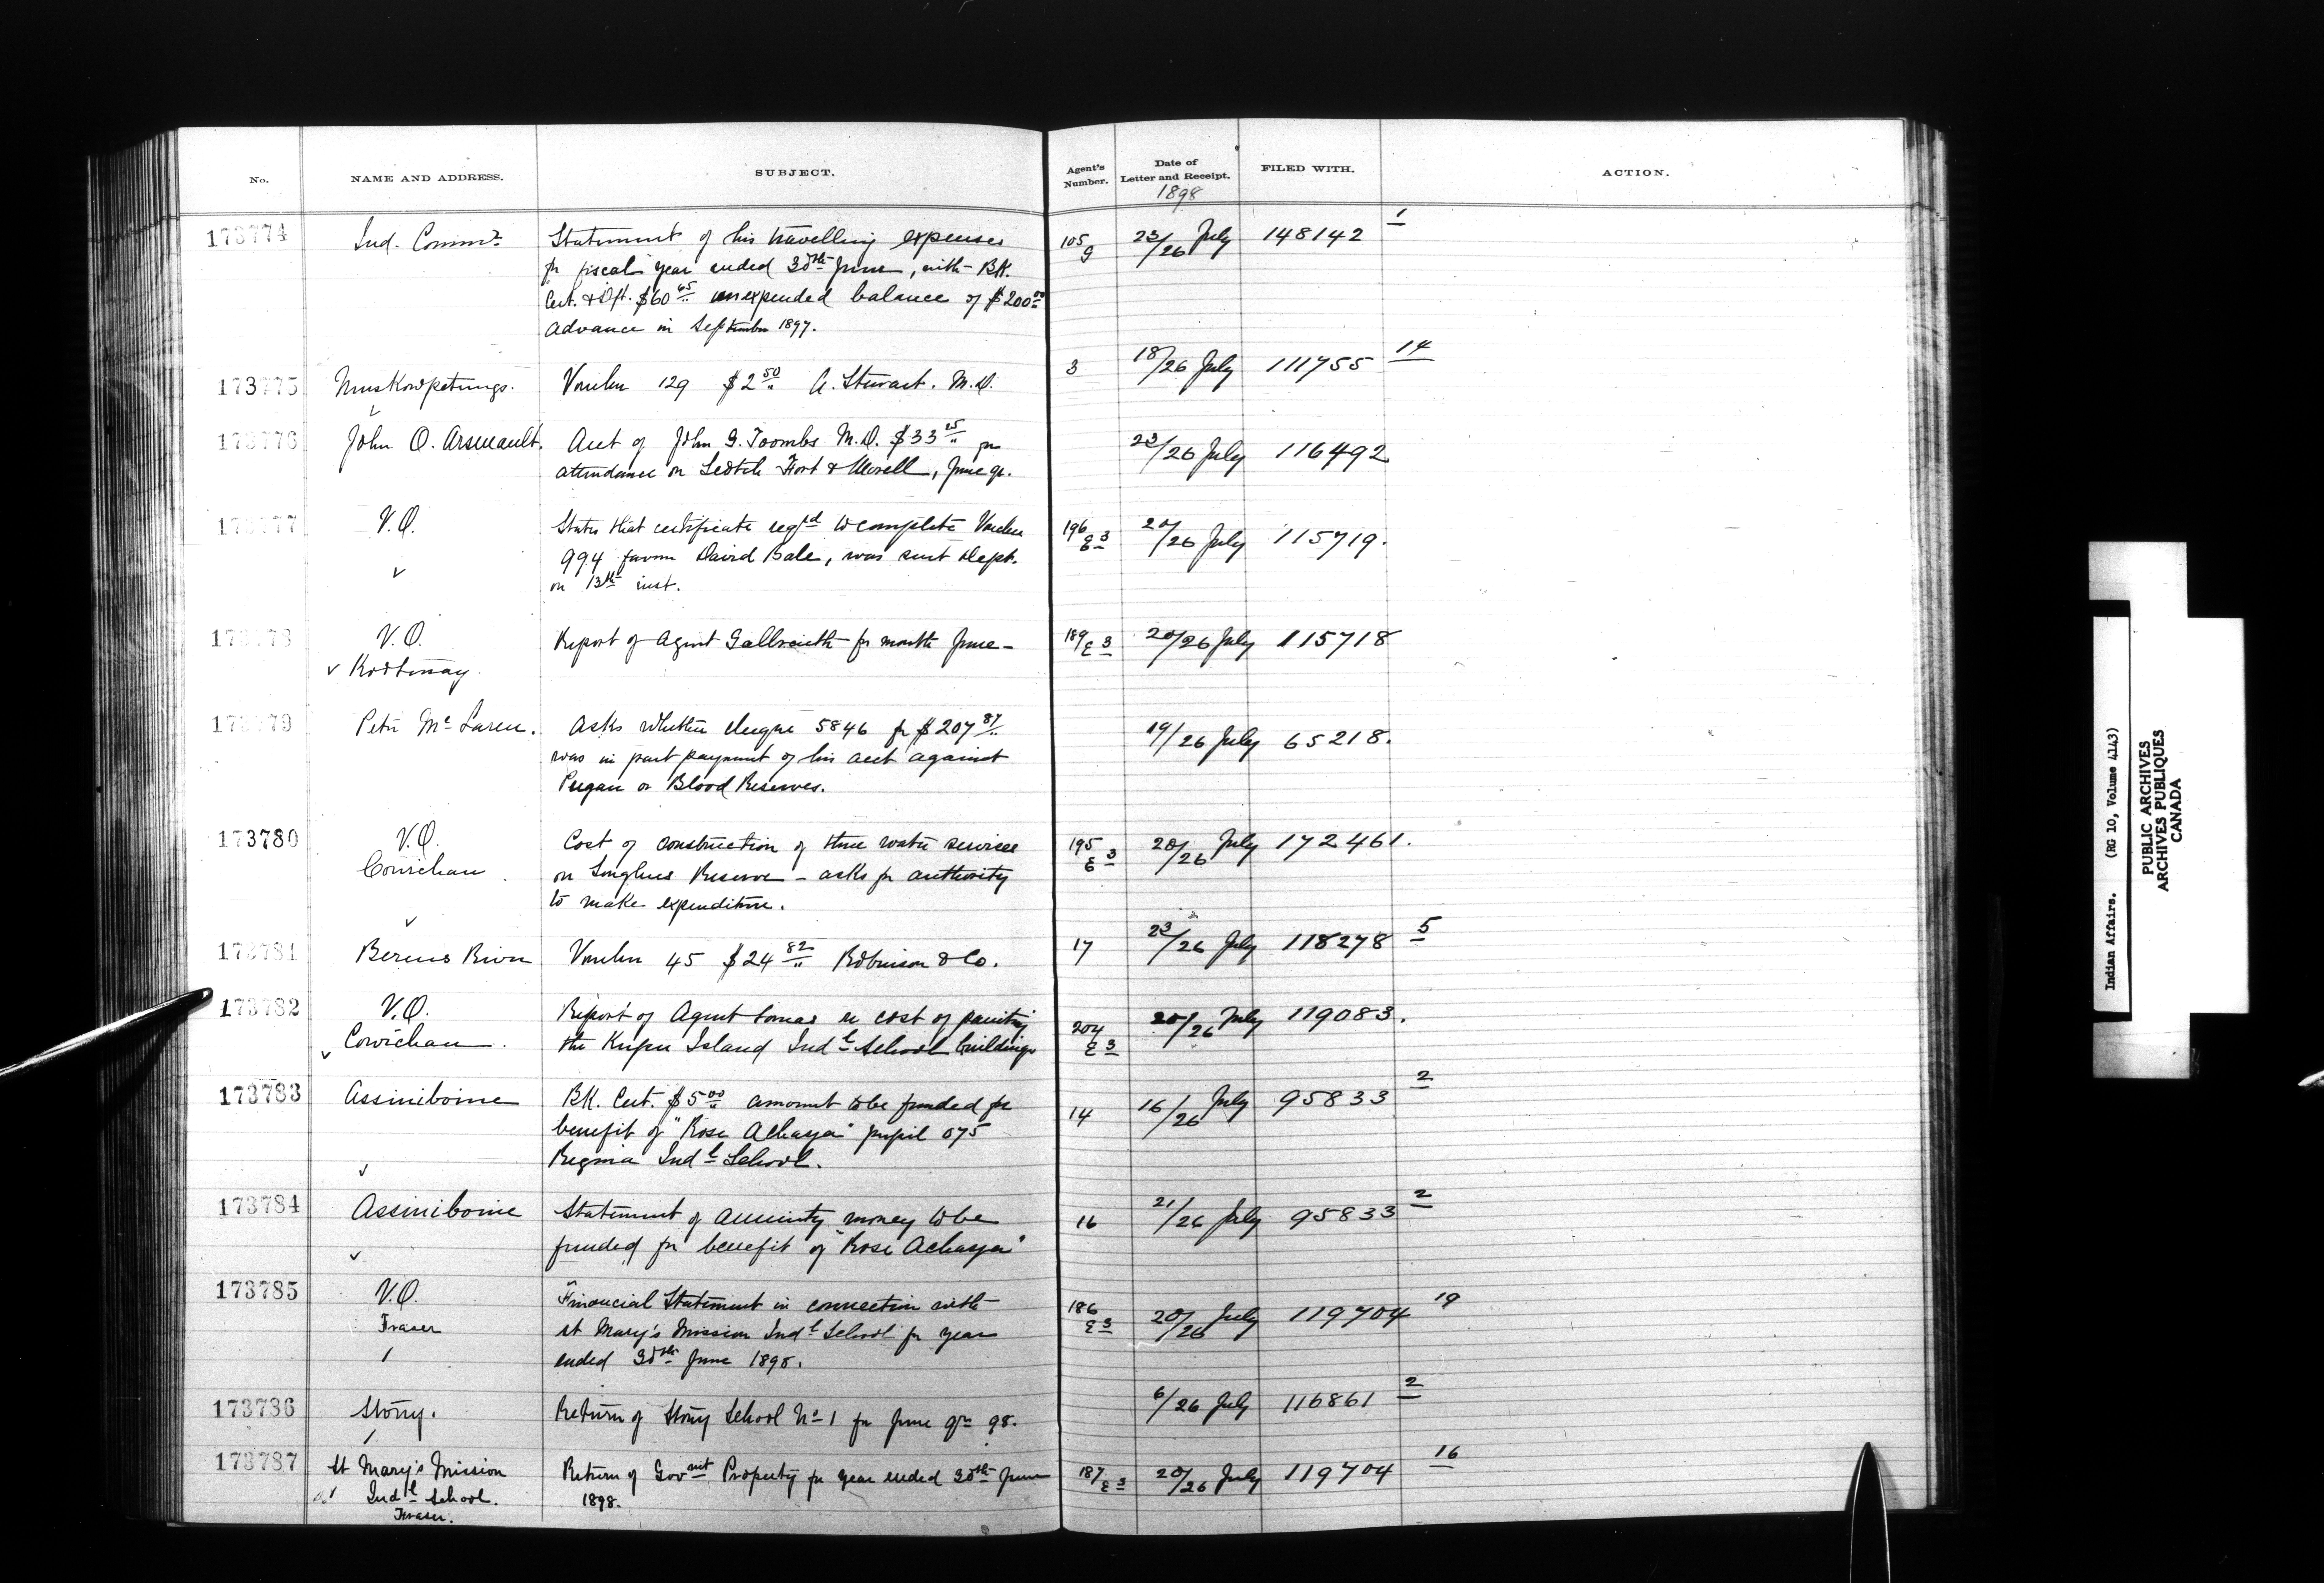 No. NAME AND ADDRESS. SUBJECT. Agent's Number. Date of Letter and Receipt. FILED WITH. ACTION.
1898
173774 Ind. Commr. Statement of his travelling expenses 105/9 23/26 July 148142 1
for fiscal year ended 30th June, with BK.
Cert. & Dft. $60 65 unexpended balance of $200 00
advance in September 1897.
173775 Muskowpetungs. Voucher 129 $2 50 A. Stewart. M.D. 3 18/26 July 111755 14
173776 John O. Arsenault. Acct of John G. Toombs M.D. $33 25 for 23/26 July 116492
attendance on Scotch Fort & Morell, June qr.
173777 V.O. States that certificate reqrd to complete Voucher 196 E 3 20/26 July 115719.
994 favour David Bale, was sent Dept.
on 13th inst.
173778 V.O. Report of Agent Galbraith for month June 189 E 3 20/26 July 115718
Kootenay.
173779 Peter McLaren. Asks whether cheque 5846 for $207 87 19/26 July 65218.
was in part payment of his acct against
Peigan or Blood Reserves.
173780 V.O. Cost of construction of three water services 195 E 3 20/26 July 172461.
Cowichan. on Songhees Reserve – asks for authority
to make expenditure.
173781 Berens River Voucher 45 $24 82 Robinson & Co. 17 23/26 July 118278 5
173782 V.O. Report of Agent Lomas re cost of painting 204 E 3 20/26 July 119083.
Cowichan. the Kuper Island Indl School buildings
173783 Assiniboine BK. Cert. $5 00 amount to be funded for 14 16/26 July 95833 2
benefit of "Rose Achaya" pupil 075
Regina Indl School.
173784 Assiniboine Statement of annuity money to be 16 21/26 July 95833 2
funded for benefit of "Rose Achaya"
173785 V.O. Financial Statement in connection with 186 E 3 20/26 July 119704 19
Fraser St Mary's Mission Indl School for year
ended 30th June 1898.
173786 Stony. Return of Stony School No 1 for June qr 98. 6/26 July 116861 2
173787 St Mary's Mission Return of Govmt Property for year ended 30th June 187 E 3 20/26 July 119704 16
Indl School. 1898.
Fraser.
Indian Affairs. (RG 10, Volume 4143)
PUBLIC ARCHIVES
ARCHIVES PUBLIQUES
CANADA